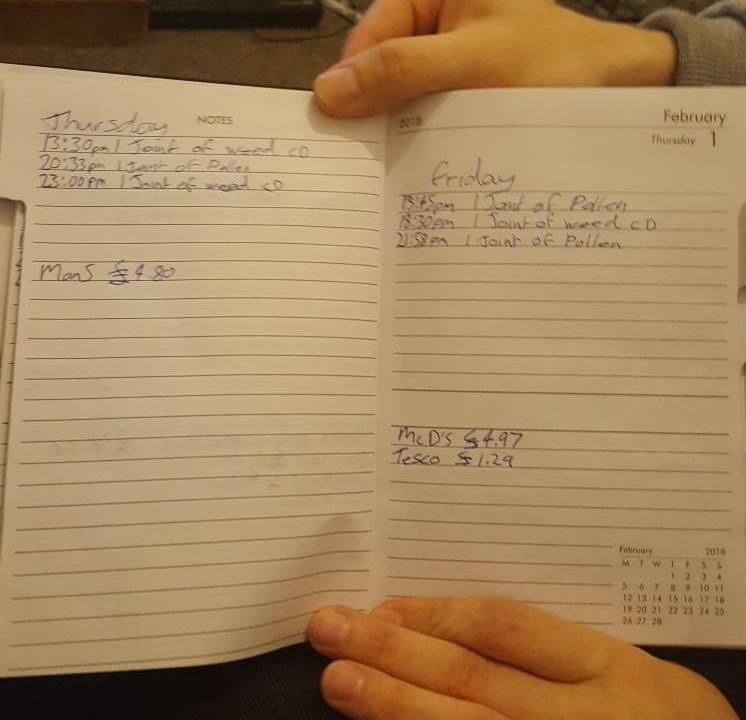 Thursday NOTES
13:30pm 1 Joint of weed CD
20:33pm 1 Joint of Pollen
23:00pm 1 Joint of weed CD
ManS £4.80
2018 February
Thursday 1
Friday
13:45pm 1 Joint of Pollen
18:30pm 1 Joint of weed CD
21:58pm 1 Joint of Pollen
McD's £4.97
Tesco £1.29
February 2018
M T W T F S S
1 2 3 4
5 6 7 8 9 10 11
12 13 14 15 16 17 18
19 20 21 22 23 24 25
26 27 28